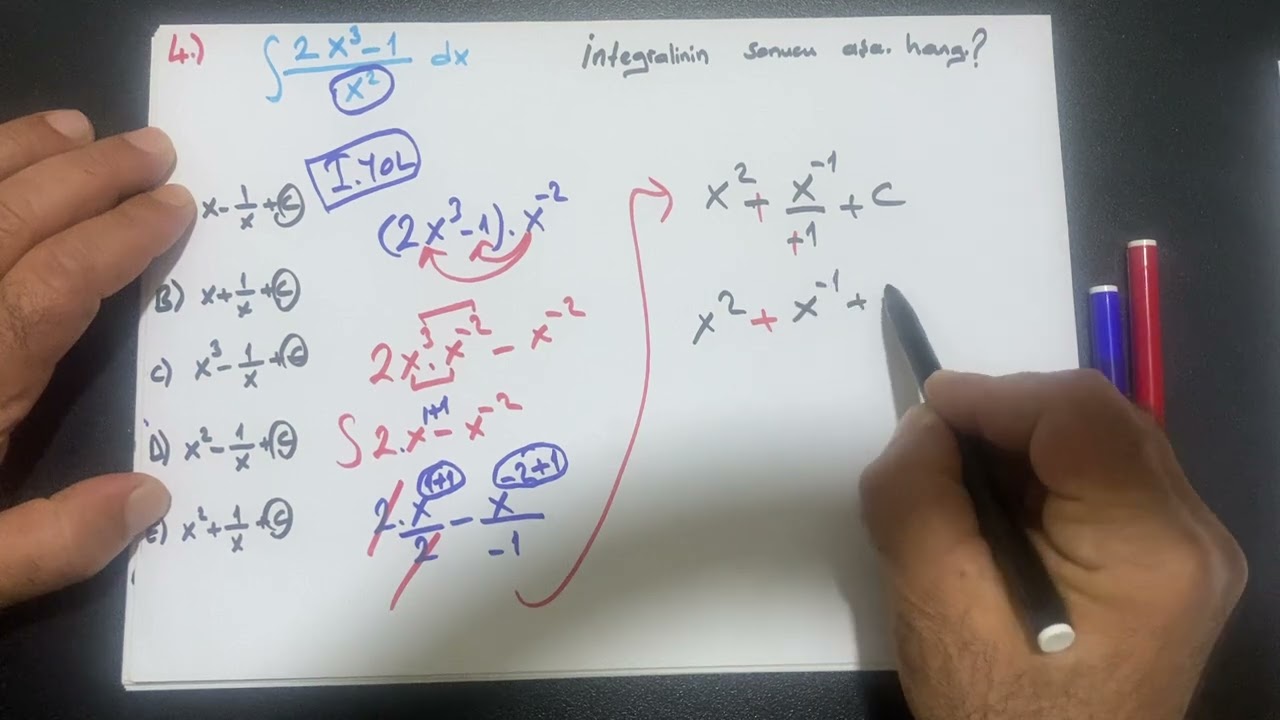 4.) ∫ 2x³-1 / x² dx integralinin sonucu aşa. hang.?
I. YOL
x - 1/x + C
B) x + 1/x + C
C) x³ - 1/x + C
D) x² - 1/x + C
E) x² + 1/x + C
(2x³-1).x⁻²
2x³.x⁻² - x⁻²
∫ 2.x¹⁺¹ - x⁻²
2.x¹⁺¹/2 - x⁻²⁺¹/-1
x² + x⁻¹/+1 + C
x² + x⁻¹ +